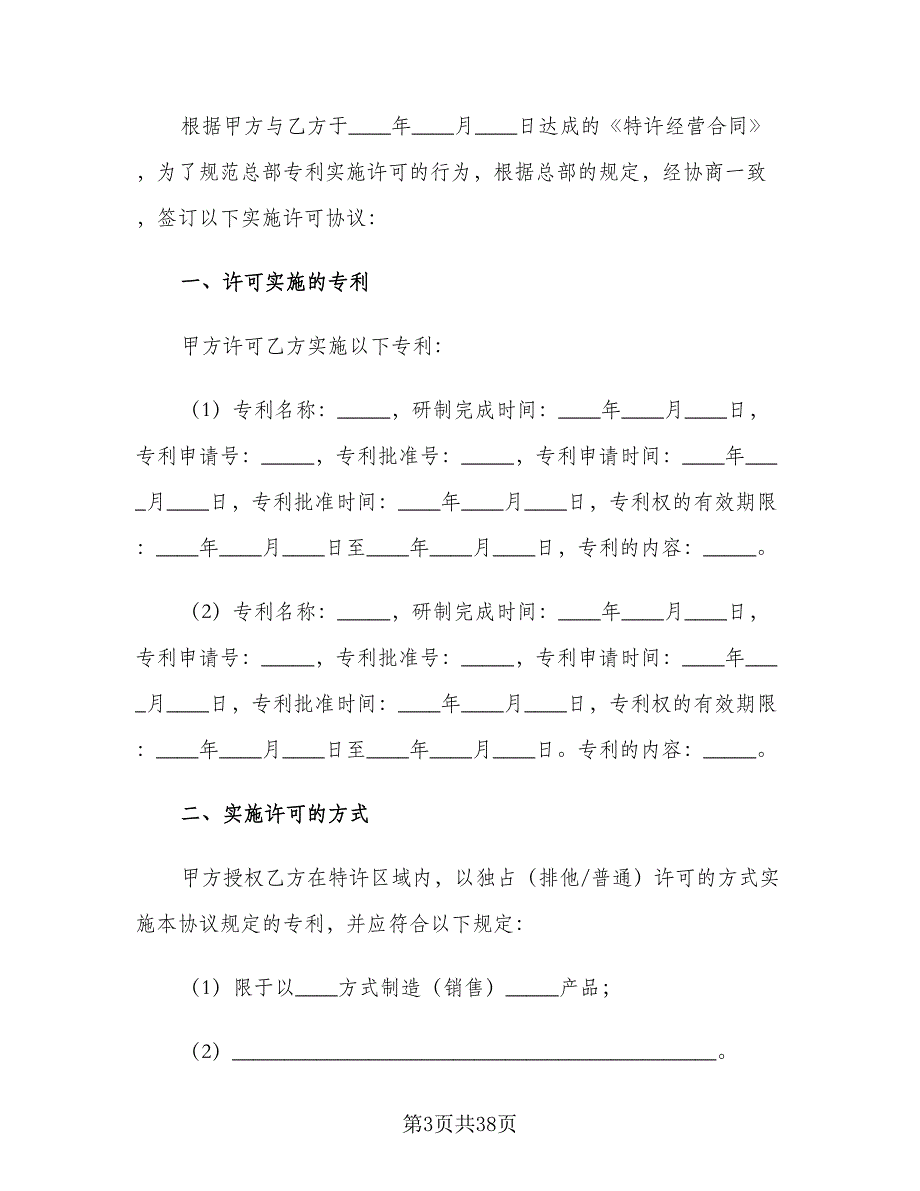 根据甲方与乙方于____年____月____日达成的《特许经营合同》
，为了规范总部专利实施许可的行为，根据总部的规定，经协商一致
，签订以下实施许可协议：
一、许可实施的专利
甲方许可乙方实施以下专利：
（1）专利名称：_____，研制完成时间：____年____月____日，
专利申请号：_____，专利批准号：_____，专利申请时间：____年___
_月____日，专利批准时间：____年____月____日，专利权的有效期限
：____年____月____日至____年____月____日，专利的内容：_____。
（2）专利名称：_____，研制完成时间：____年____月____日，
专利申请号：_____，专利批准号：_____，专利申请时间：____年___
_月____日，专利批准时间：____年____月____日，专利权的有效期限
：____年____月____日至____年____月____日。专利的内容：_____。
二、实施许可的方式
甲方授权乙方在特许区域内，以独占（排他/普通）许可的方式实
施本协议规定的专利，并应符合以下规定：
（1）限于以____方式制造（销售）_____产品；
（2）______________________________________________。
第3页共38页